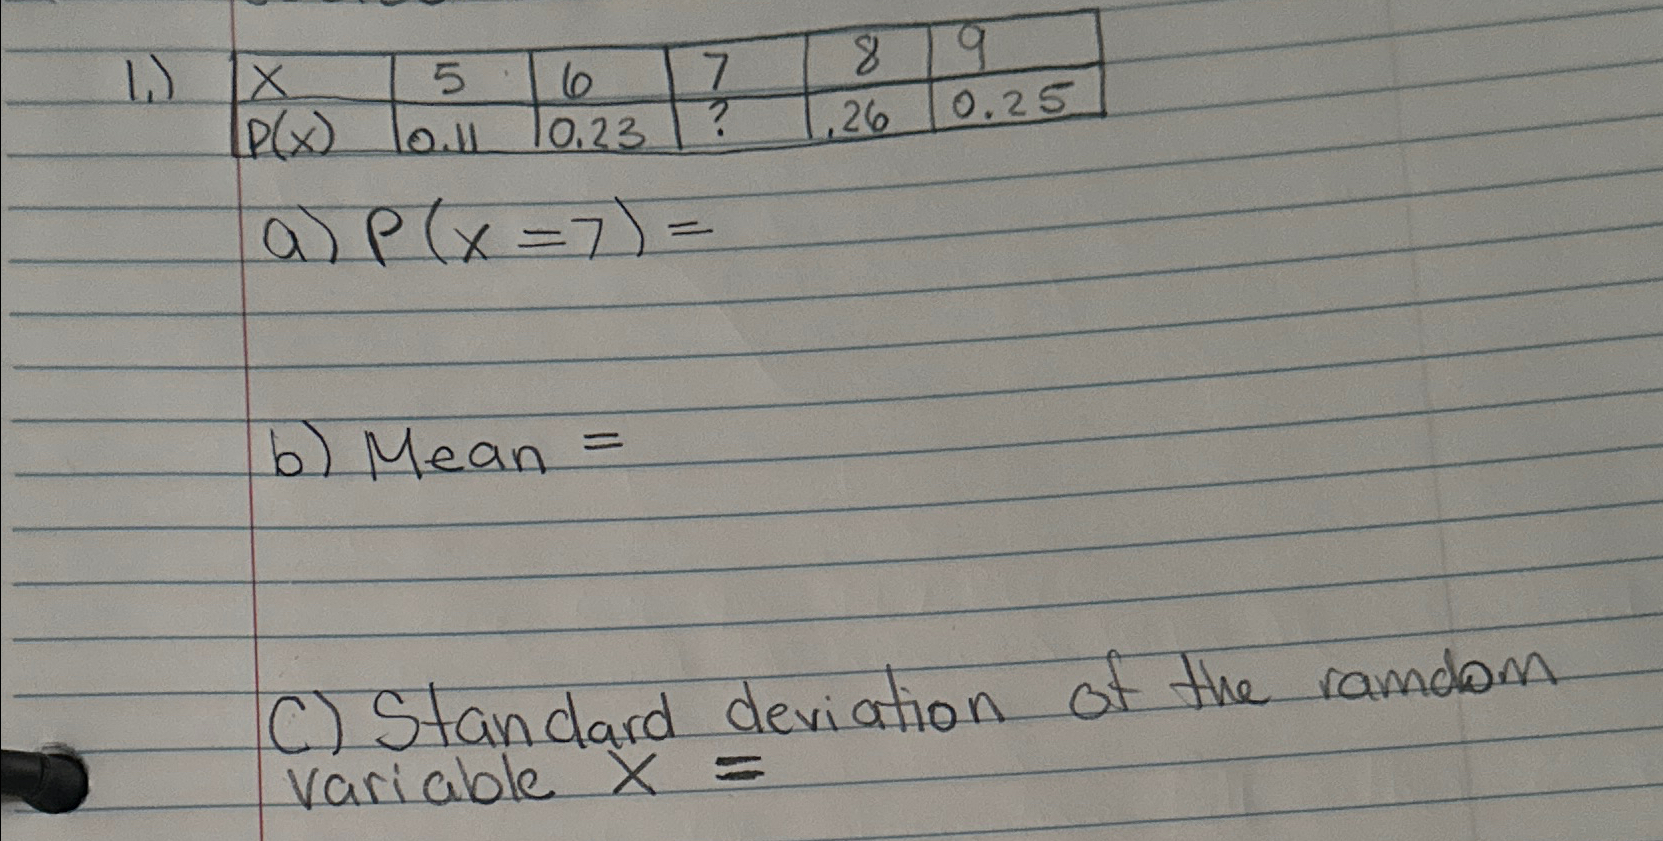 1.) X 5 6 7 8 9
P(x) 0.11 0.23 ? .26 0.25
a) P(x=7)=
b) Mean =
C) Standard deviation of the ramdom
variable X =